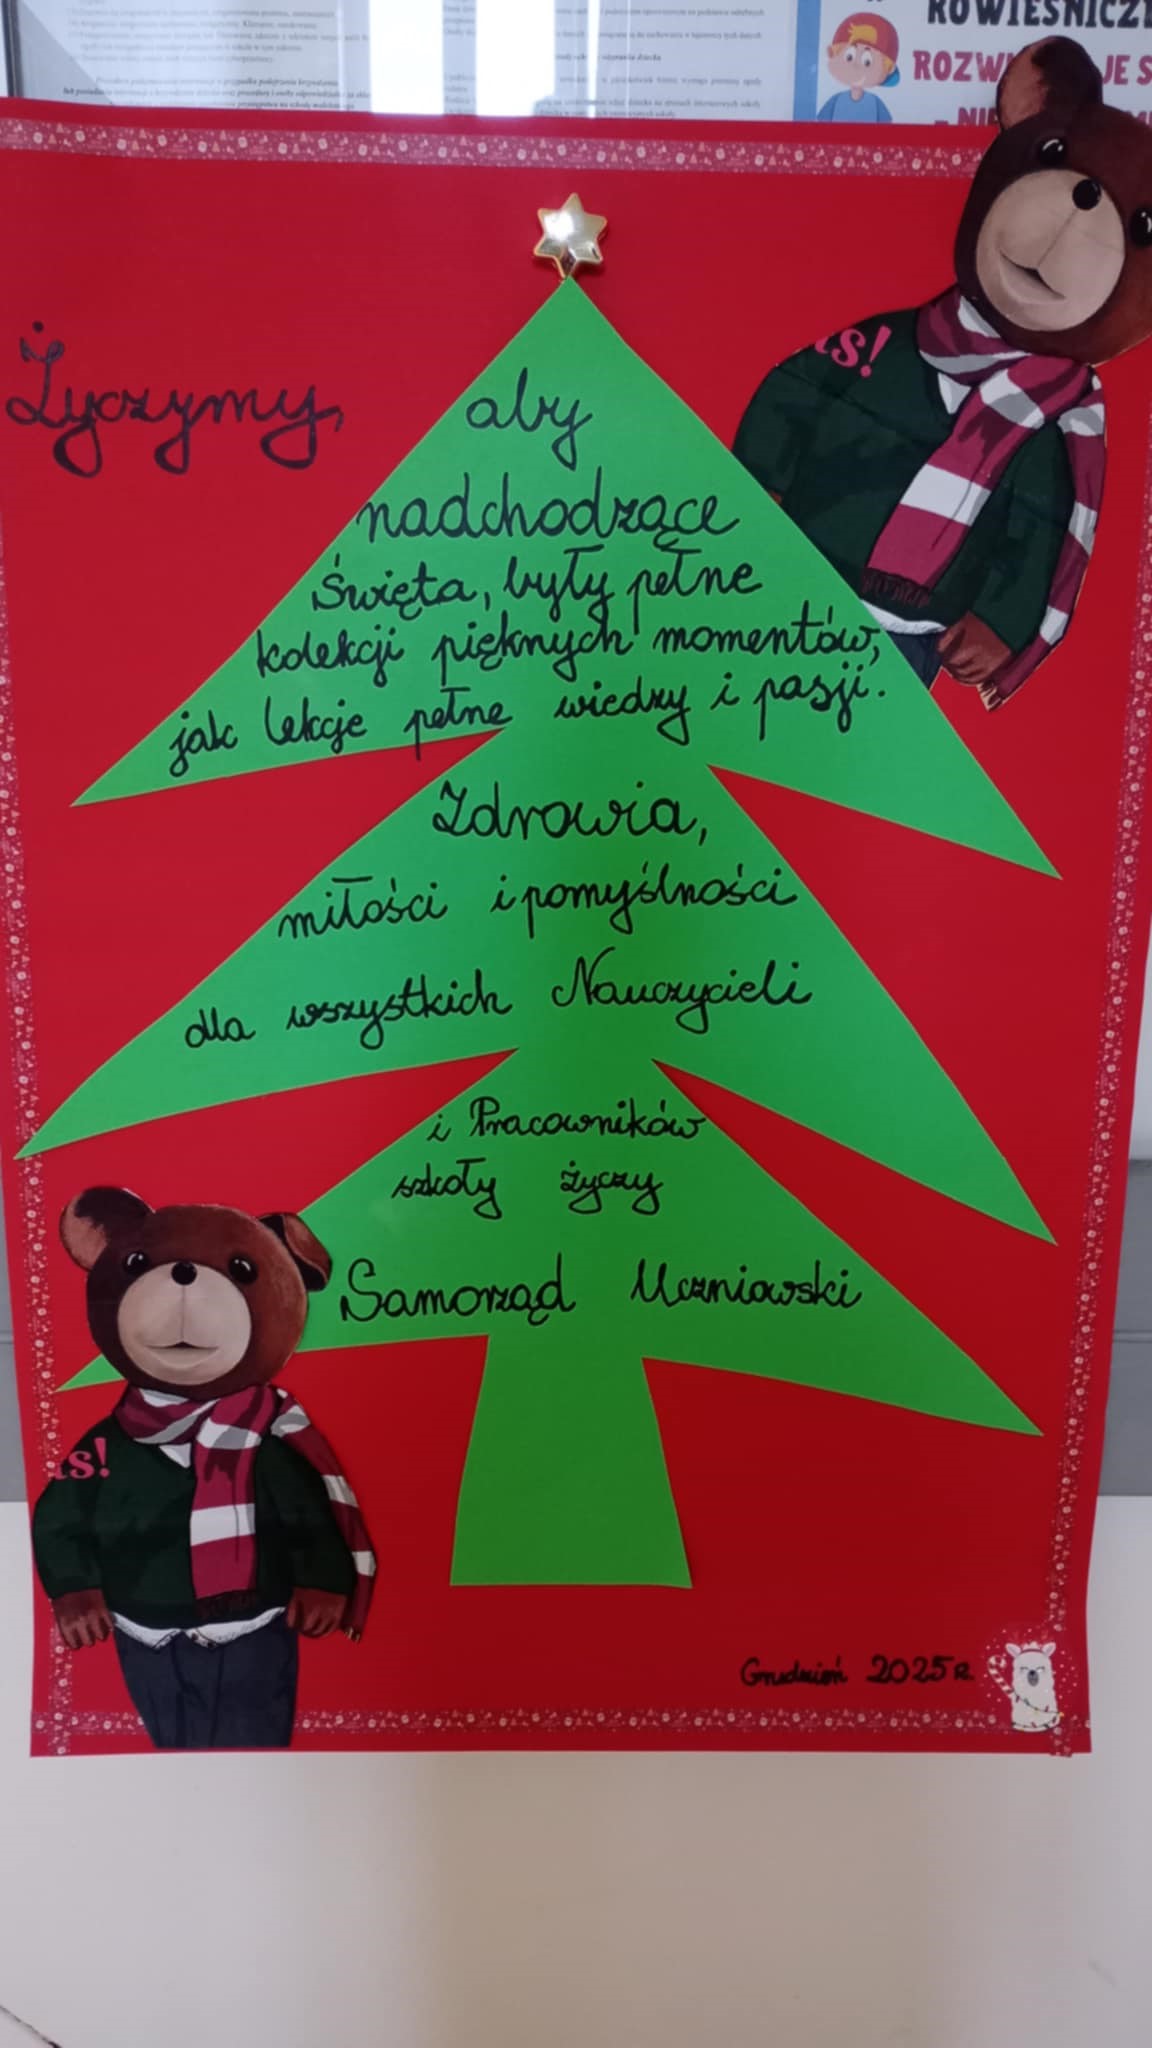 ROWIEŚNICZ
ROZW JE S
Życzymy,
aby
nadchodzące
Święta, były pełne
kolekcji pięknych momentów,
jak lekcje pełne wiedzy i pasji.
Zdrowia,
miłości i pomyślności
dla wszystkich Nauczycieli
i Pracowników
szkoły życzy
Samorząd Uczniowski
as!
as!
Grudzień 2025 r.